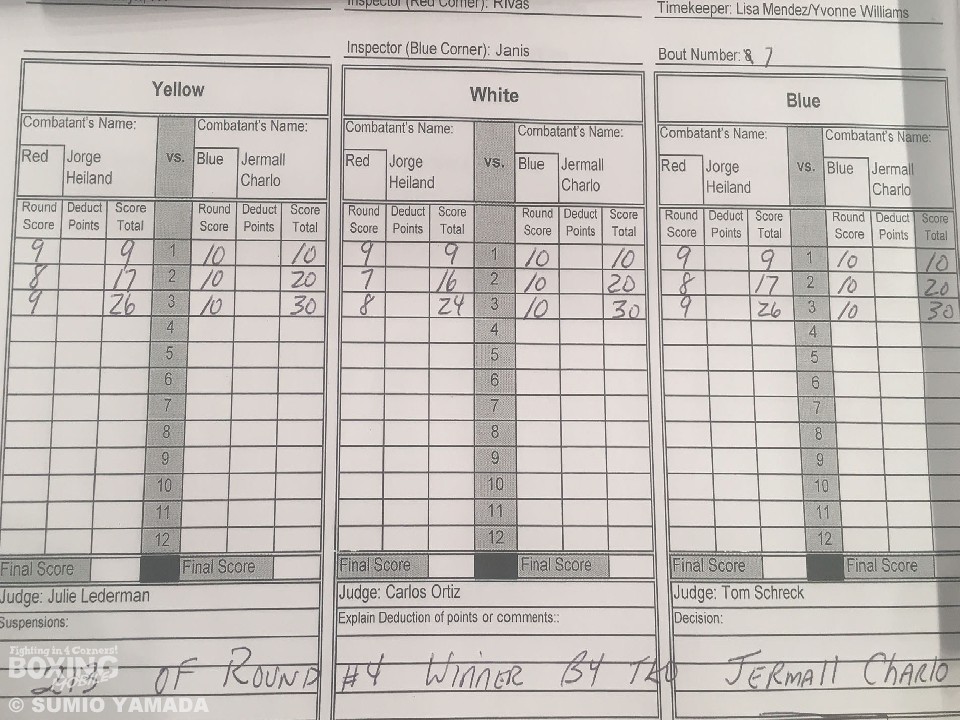 Inspector (Red Corner): Rivas
Timekeeper: Lisa Mendez/Yvonne Williams
Inspector (Blue Corner): Janis
Bout Number: 7
Yellow White Blue
Combatant's Name: Combatant's Name: Combatant's Name: Combatant's Name: Combatant's Name: Combatant's Name:
Red Jorge vs. Blue Jermall Red Jorge vs. Blue Jermall Red Jorge vs. Blue Jermall
Heiland Charlo Heiland Charlo Heiland Charlo
Round Deduct Score Round Deduct Score Round Deduct Score Round Deduct Score Round Deduct Score Round Deduct Score
Score Points Total Score Points Total Score Points Total Score Points Total Score Points Total Score Points Total
9 9 1 10 10 9 9 1 10 10 9 9 1 10 10
8 17 2 10 20 7 16 2 10 20 8 17 2 10 20
9 26 3 10 30 8 24 3 10 30 9 26 3 10 30
4 4 4
5 5 5
6 6 6
7 7 7
8 8 8
9 9 9
10 10 10
11 11 11
12 12 12
Final Score Final Score Final Score Final Score Final Score Final Score
Judge: Julie Lederman Judge: Carlos Ortiz Judge: Tom Schreck
Suspensions: Explain Deduction of points or comments:: Decision:
Fighting in 4 Corners!
BOXING
OF ROUND #4 WINNER BY TKO JERMAll CHARlO
© SUMIO YAMADA